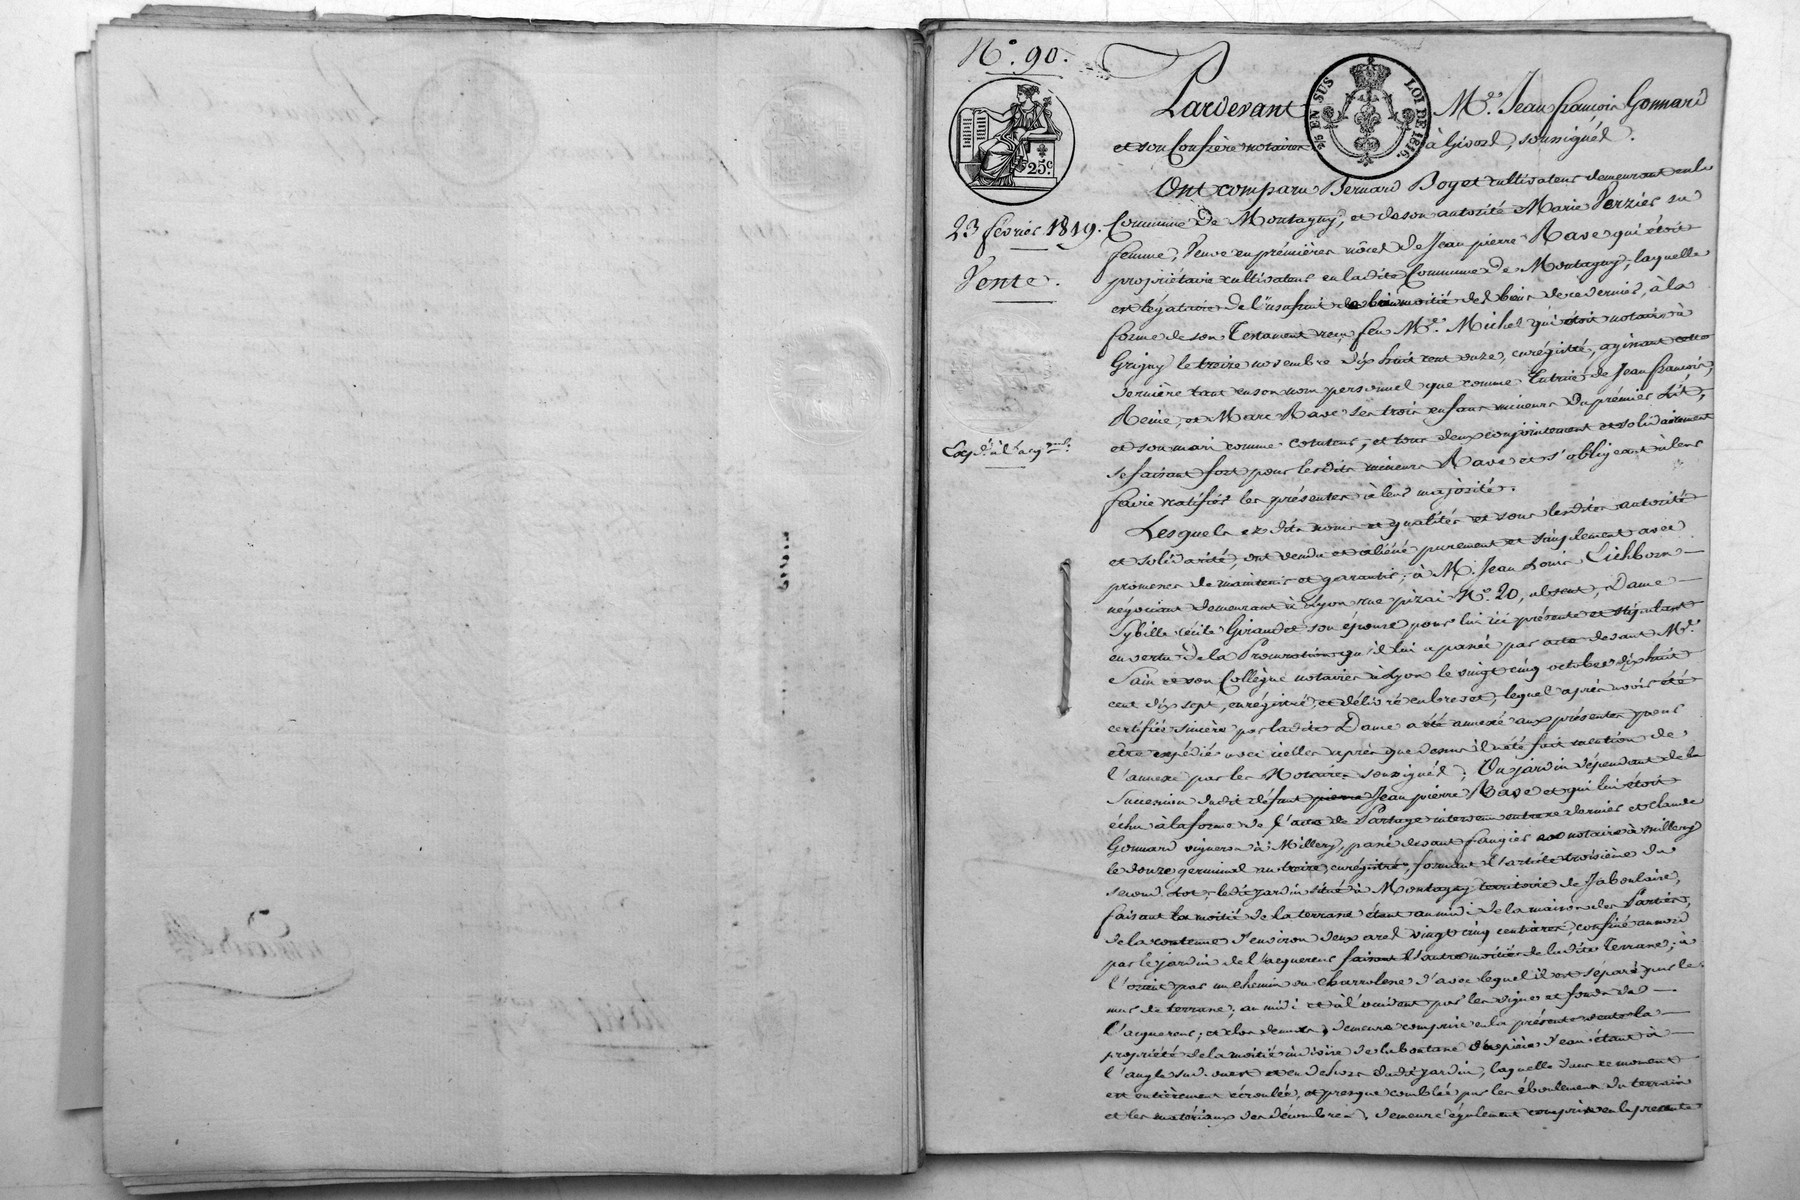 N.° 90.
25.c
¾ EN SUS LOI DE 1816.
23 février 1819.
Vente.
Pardevant M.e Jean françois Gonnard
et son Confrère notaires à Givors, soussignés.
Ont comparu Bernard Boget cultivateur demeurant en la
Commune de Montagny, et de son autorité Marie Verzier sa
femme, Veuve en prémières nôces de Jean pierre Rave qui étoit
propriétaire cultivateur en ladite Commune de Montagny, laquelle
est légataire de l'usufruit de la moitié des biens de ce dernier, à la
forme de son Testament reçu feu M.e Michel qui étoit notaire à
Grigny le treize novembre dix huit cent onze, enrégistré, agissant cette
dernière tant en son nom personnel que comme Tutrice de Jean françois,
Reine, et Marc Rave ses trois enfans mineurs du prémier Lit,
et son mari comme cotuteur, et tous deux conjointement et solidairement
se faisant fort pour lesdits mineurs Rave et s'obligeant à leur
faire ratifier les présentes à leur majorité.
Lesquels ez dits noms et qualités et sous lesdites autorité
et solidarité, ont vendu et aliéné purement et simplement avec
promesse de maintenir et garantir, à M. Jean Louis Eichborn
négociant demeurant à Lyon rue pizai N.° 20, absent, Dame
Sybille cécile Giraud son épouse pour lui ici présente et stipulant
en vertu de la Procuration qu'il lui a passée par acte devant M.e
Sain et son Collègue notaires à Lyon le vingt cinq octobre dix huit
cent dix sept, enrégistré, et délivré en brevet, lequel après avoir été
certifié sincère par ladite Dame a été annexé aux présentes pour
être expédié avec icelles après que dessus il a été fait mention de
l'annexe par les Notaires soussignés; Un jardin dépendant de la
Succession dudit défunt Jean pierre Rave et qui lui étoit
échu à la forme de l'acte de Partage intervenu entre ce dernier et claude
Gonnard vigneron à Millery, passé devant fangier notaire à millery
le douze germinal an treize, enrégistré, formant l'article troisième du
second Lot, ledit jardin situé à Montagny territoire de Jaboulaire,
faisant la moitié de la terrasse étant au midi de la maison des Parties,
de la contenue d'environ deux ares vingt cinq centiares, confiné au nord
par le jardin de l'acquereur faisant l'autre moitié de ladite Terrasse; à
l'orient par un chemin ou charrolene d'avec lequel il est séparé par le
mur de terrasse; au midi et à l'occident par les vigne et fonds de
l'acquereur; demeure comprise en la présente vente la
propriété de la moitié indivise de la d'eau étant à
l'angle sud-ouest et en dehors dudit jardin, laquelle dans ce moment
est entièrement écroulée, et presque comblée par les éboulemens du terrain
et les matériaux des décombres, demeure également comprise en la presente